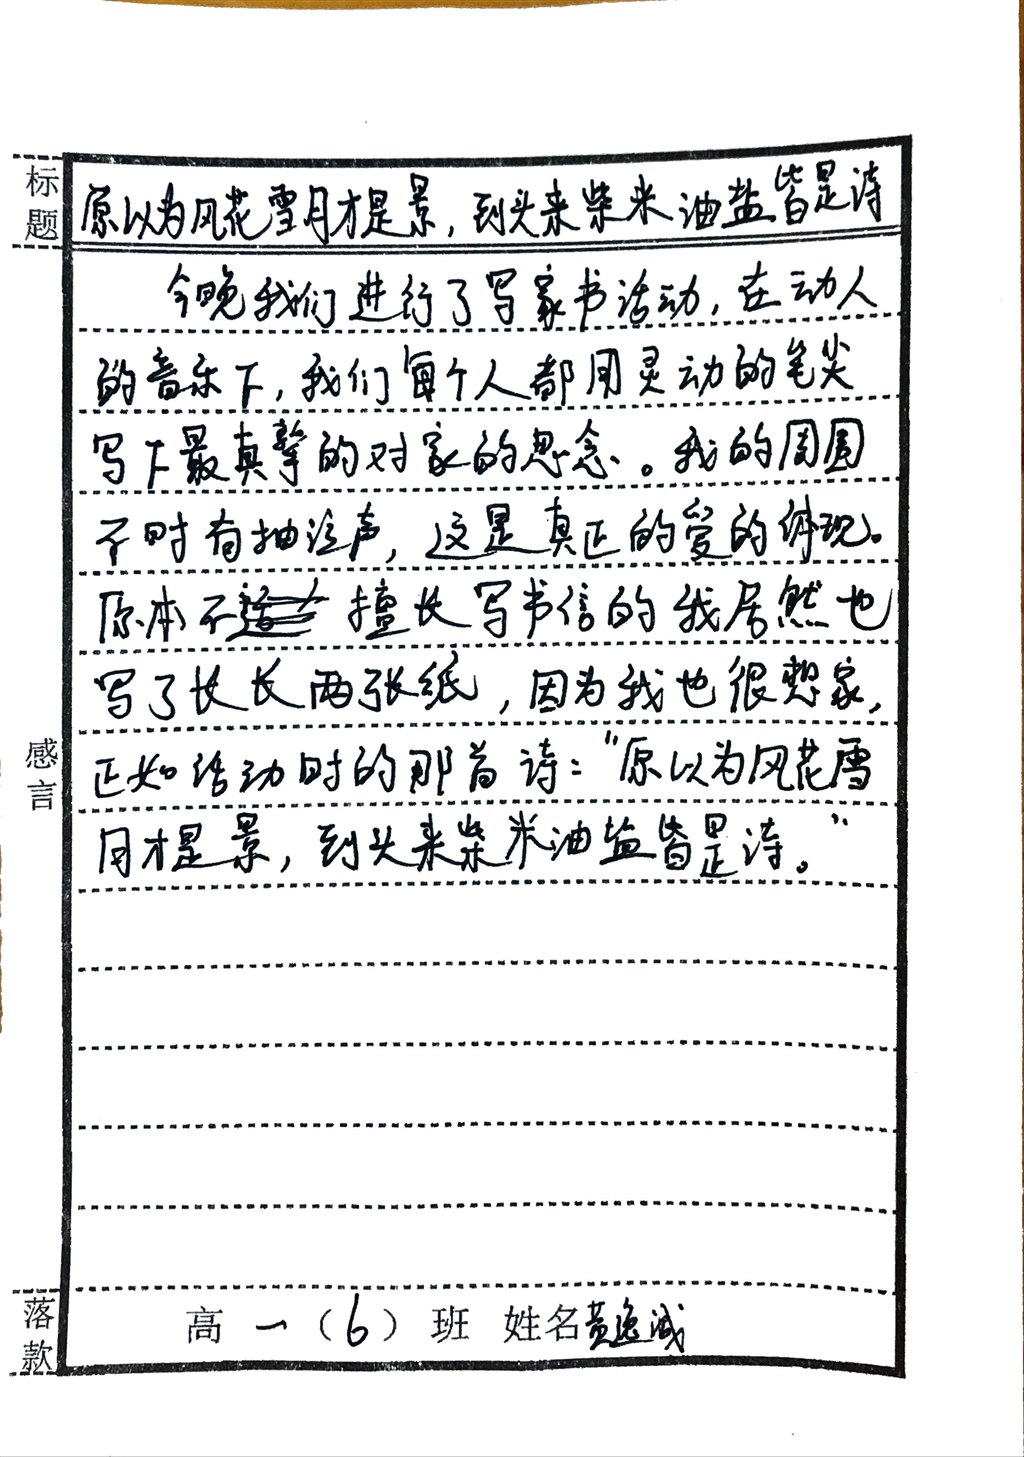 标题
原以为风花雪月才是景，到头来柴米油盐皆是诗
今晚我们进行了写家书活动，在动人
的音乐下，我们每个人都用灵动的笔尖
写下最真挚的对家的思念。我的周围
不时有抽泣声，这是真正的爱的体现。
原本不擅长写书信的我居然也
写了长长两张纸，因为我也很想家，
正如活动时的那首诗：“原以为风花雪
月才是景，到头来柴米油盐皆是诗。”
感言
落款
高一（6）班 姓名黄逸